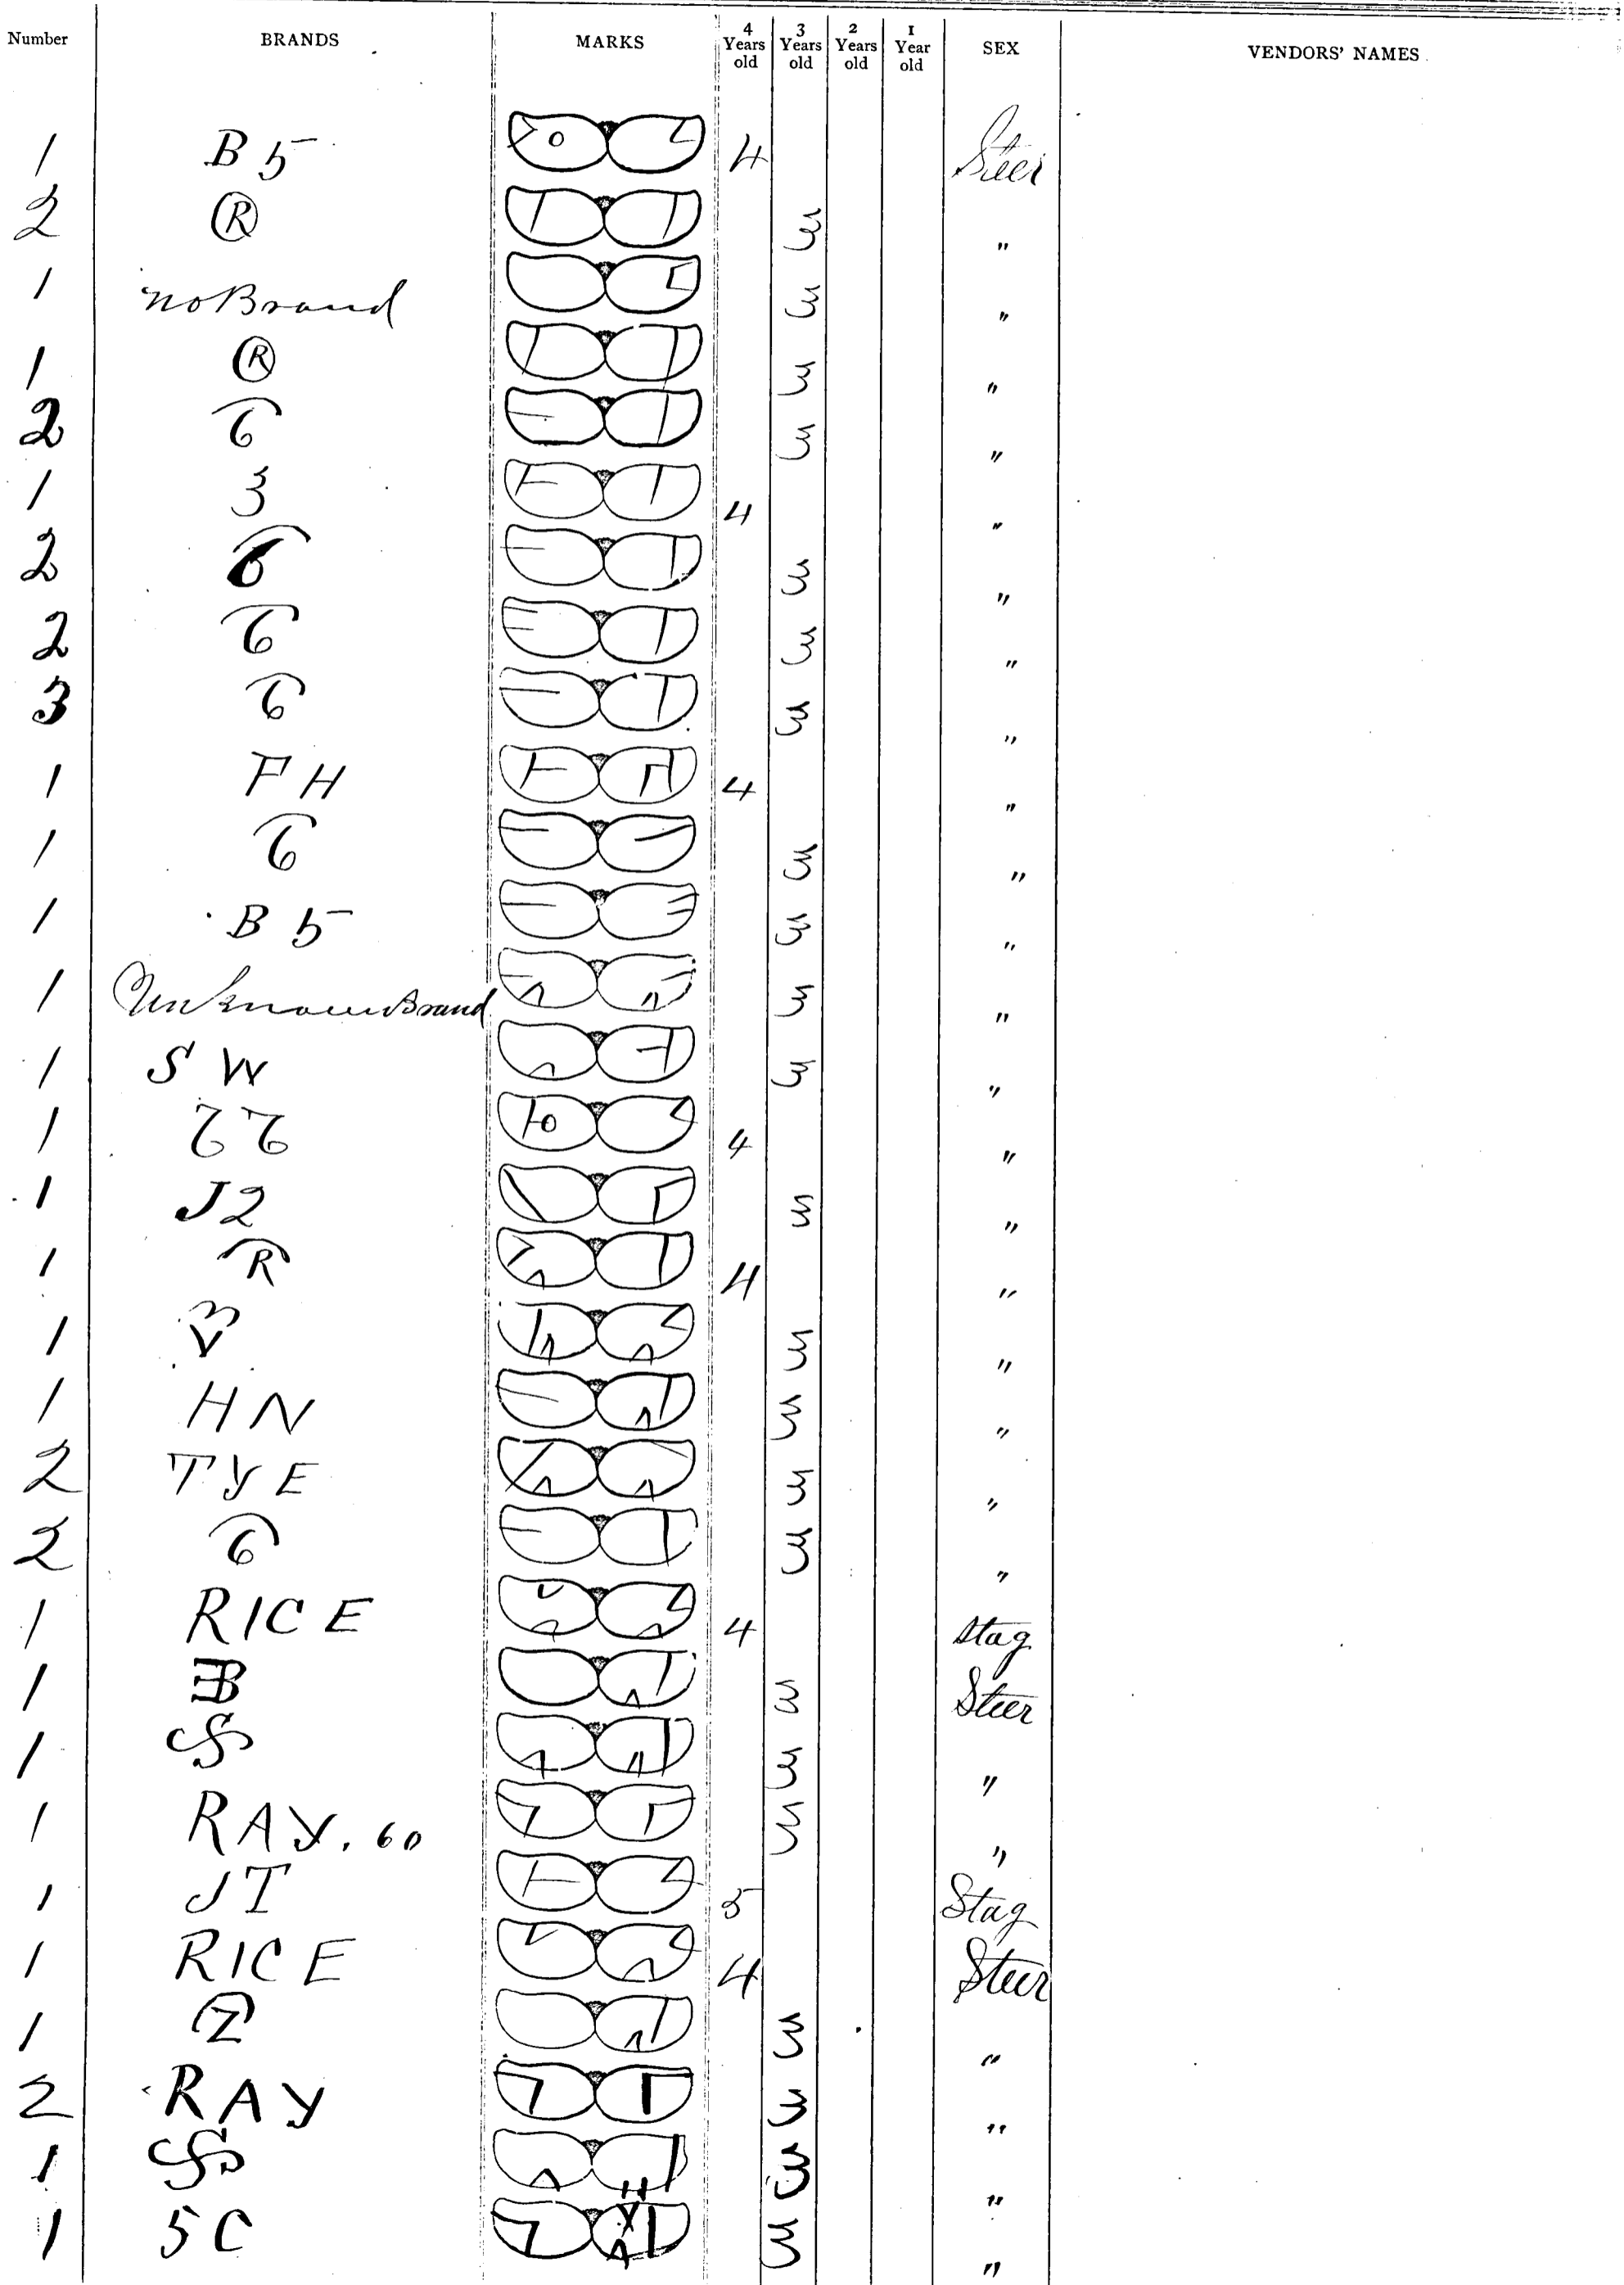 Number BRANDS MARKS 4 Years old 3 Years old 2 Years old 1 Year old SEX VENDORS' NAMES
1 B 5 4 Steer
2 R 3 "
1 no Brand 3 "
1 R 3 "
2 6 3 "
1 3 4 "
2 6 3 "
2 6 3 "
3 6 3 "
1 F H 4 "
1 6 3 "
1 B 5 3 "
1 Unknown Brand 3 "
1 S W 3 "
1 4 "
1 J2 3 "
1 R 4 "
1 3 "
1 H N 3 "
2 T Y E 3 "
2 6 3 "
1 RICE 4 Stag
1 3 Steer
1 3 "
1 RAY. 60 3 "
1 JT 5 Stag
1 RICE 4 Steer
1 Z 3 "
2 RAY 3 "
1 3 "
1 5 C 3 "